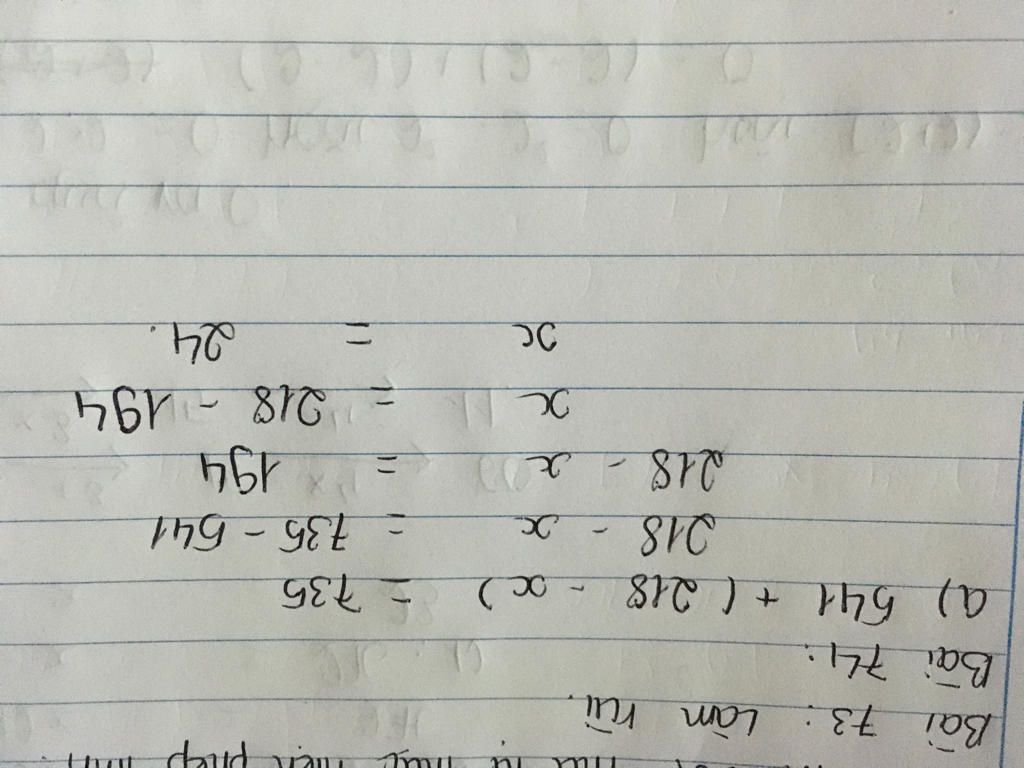 hiện phép tính.
Bài 73: Làm rùi.
Bài 74:
a) 541 + (218 - x) = 735
218 - x = 735 - 541
218 - x = 194
x = 218 - 194
x = 24.